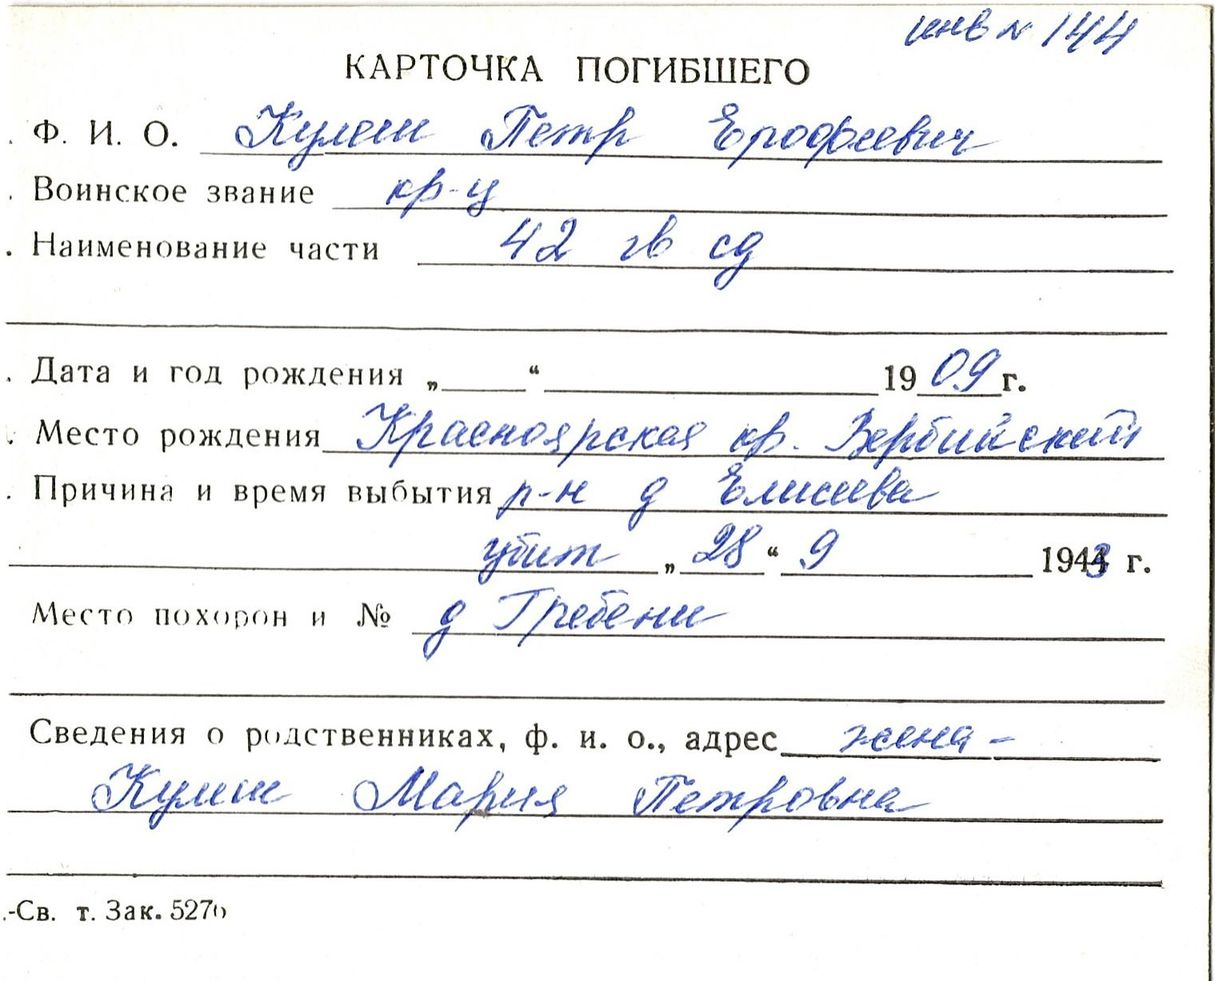 инв № 144
КАРТОЧКА ПОГИБШЕГО
. Ф. И. О. Кулеш Петр Ерофеевич
. Воинское звание кр-ц
. Наименование части 42 гв сд
. Дата и год рождения „ “ 1909 г.
. Место рождения Красноярская кр. Вербийский
. Причина и время выбытия р-н д Елисеева
убит „28“ 9 1943 г.
Место похорон и № д Гребени
Сведения о родственниках, ф. и. о., адрес жена -
Кулеш Мария Петровна
.-Св. т. Зак. 5276